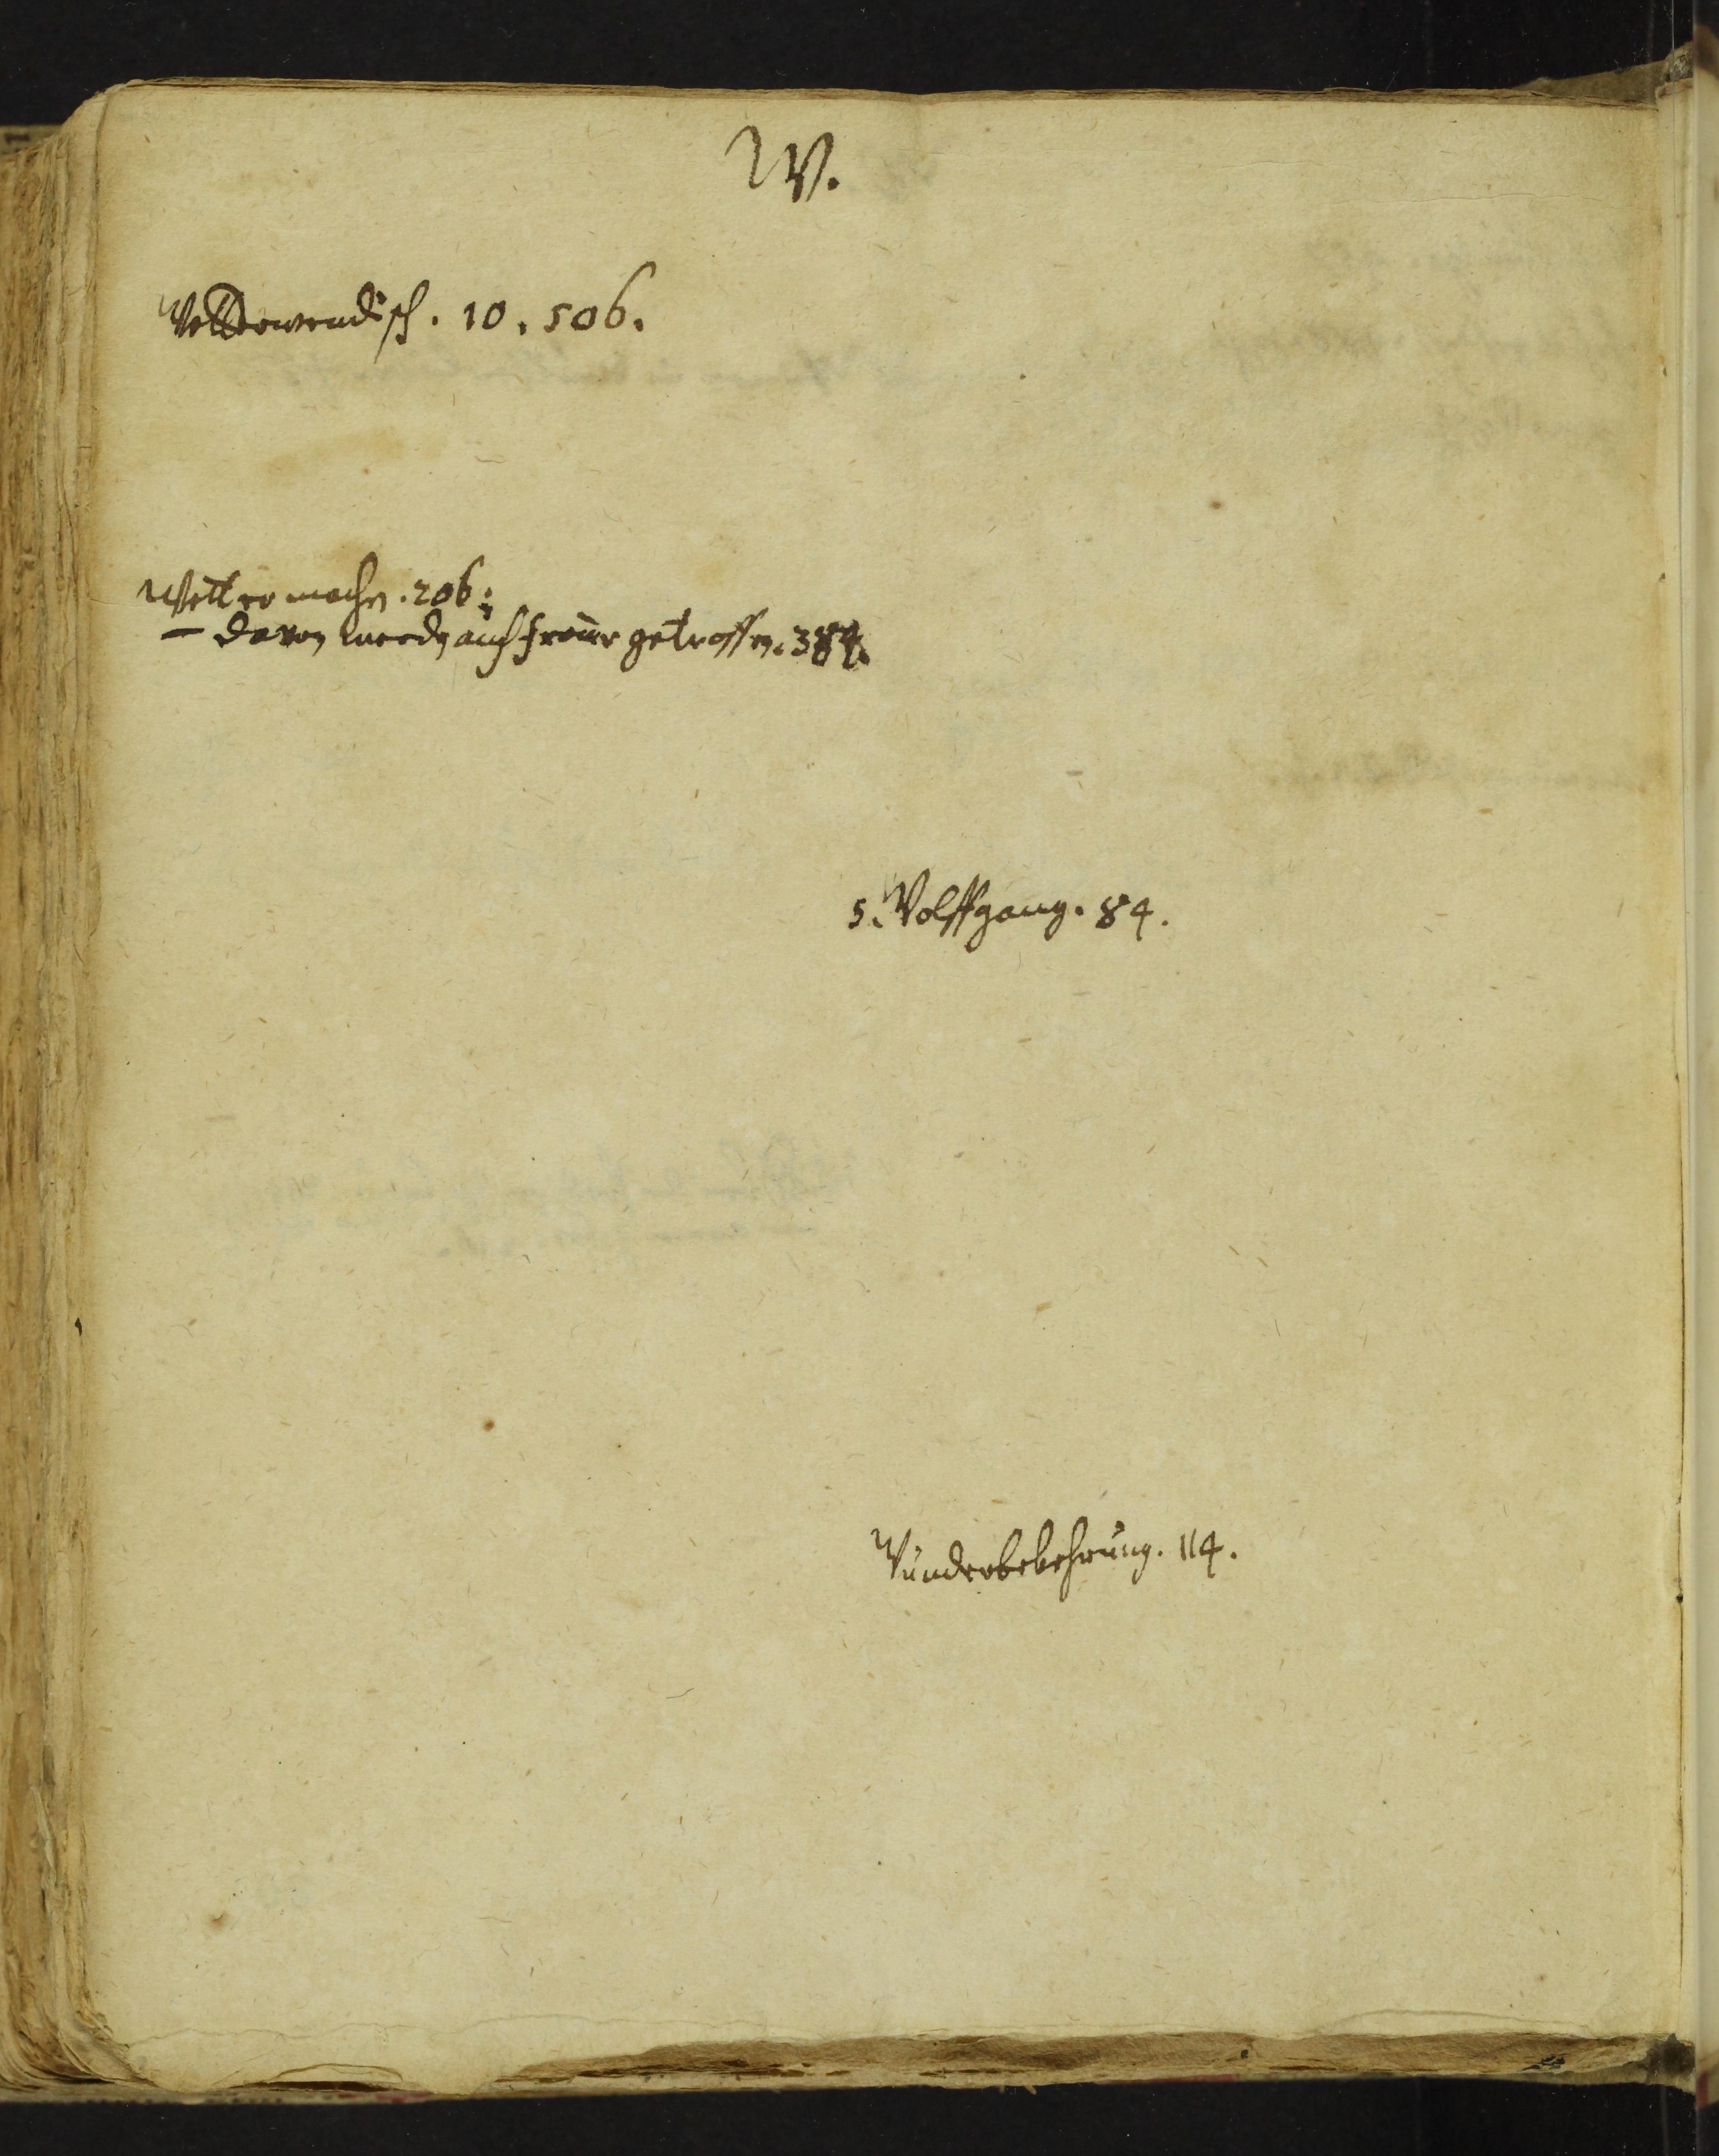 W.
Wetterwendisch. 10. 506.
Wetter machen. 206.
— davon werden auch Fromme getroffen. 384.
S. Wolffgang. 84.
Wunderbekehrung. 114.